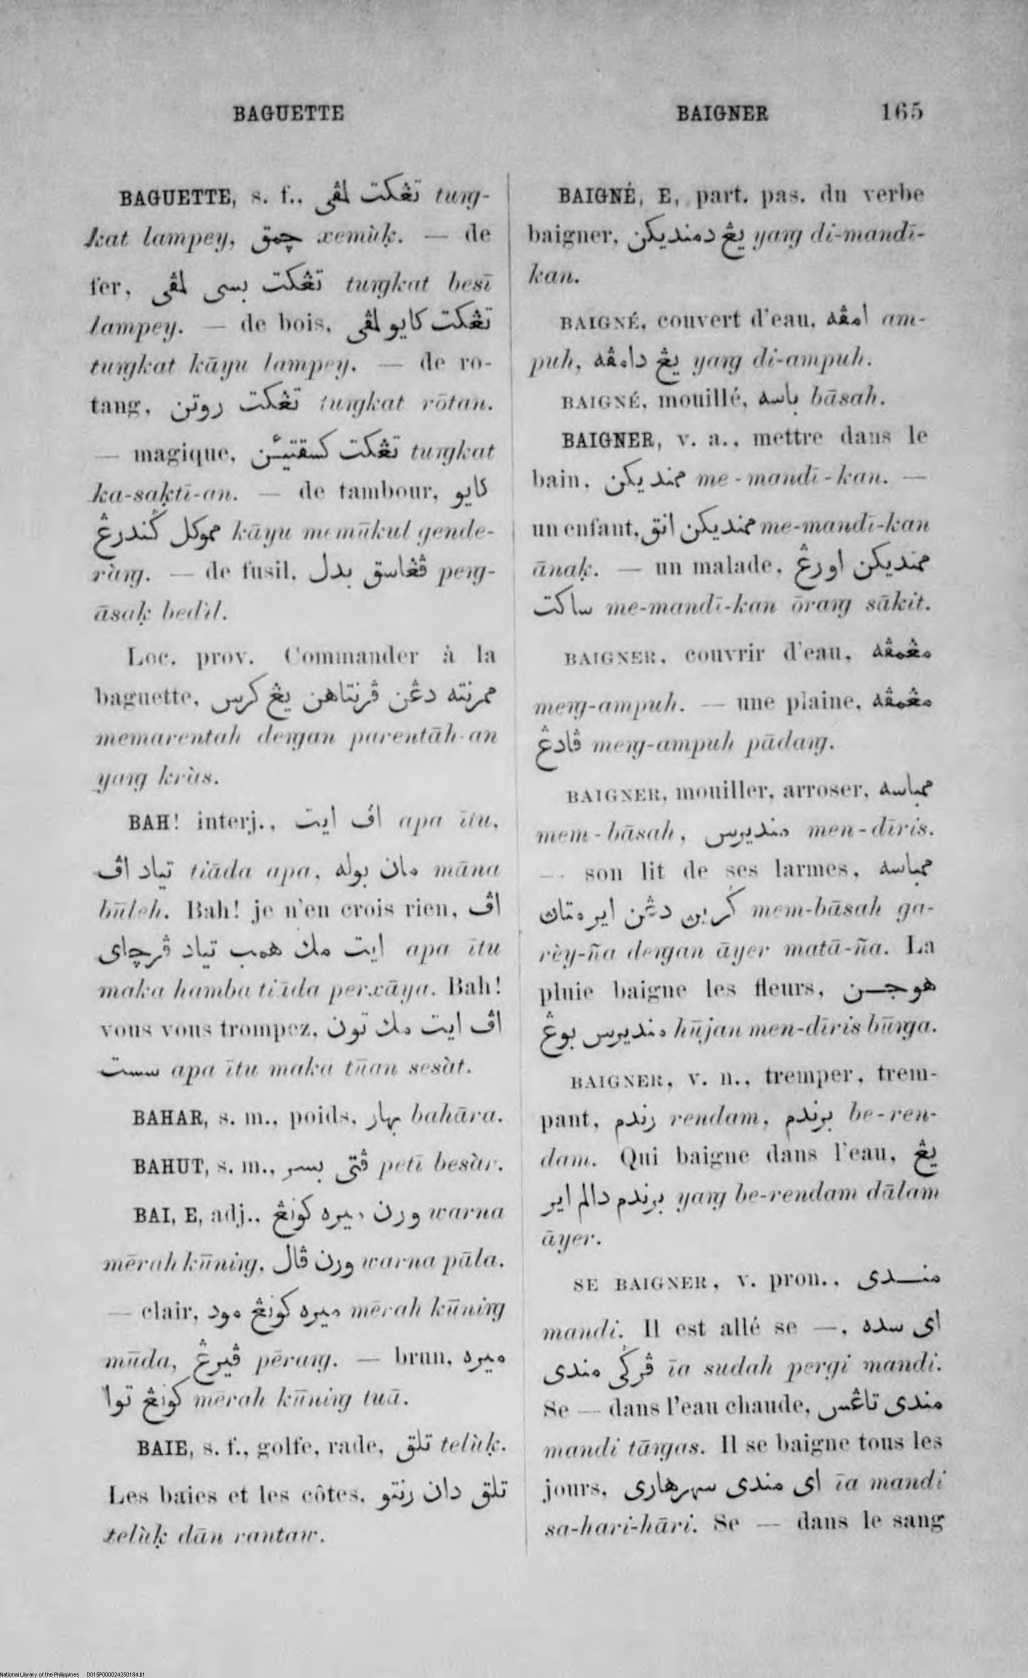 BAGUETTE
BAIGNER 165
BAGUETTE, s. f., تڠکت لمڤی tuṅg-
kat lampey, چمق xemùḳ. — de
fer, تڠکت بسی لمڤی tuṅgkat besī
lampey. — de bois, تڠکت کايو لمڤی
tuṅgkat kāyu lampey. — de ro-
tang, تڠکت روتن tuṅgkat rōtan.
— magique, تڠکت کسقتيئن tuṅgkat
ka-saḳtī-an. — de tambour, کايو
مموکل ݢندرڠ kāyu memūkul gende-
ràṅg. — de fusil, ڤڠاسق بدل peṅg-
āsaḳ bedìl.
Loc. prov. Commander à la
baguette, ممرنته دڠن ڤرنتاهن يڠ کرس
memarentah deṅgan parentāh-an
yaṅg kràs.
BAH! interj., اڤ ايت apa ītu,
تياد اڤ tiāda apa, مان بوله māna
būleh. Bah! je n'en crois rien, اڤ
ايت مك همب تياد ڤرچاى apa ītu
maka hamba tiāda perxāya. Bah!
vous vous trompez, اڤ ايت مك تون
سست apa ītu maka tūan sesàt.
BAHAR, s. m., poids, بهار bahāra.
BAHUT, s. m., ڤتی بسر petī besàr.
BAI, E, adj., ورن ميره کونڠ warna
mērah kūniṅg, ورن ڤال warna pāla.
— clair, ميره کونڠ مود mērah kūniṅg
mūda, ڤيرڠ pēraṅg. — brun, ميره
کونڠ توا mērah kūniṅg tuā.
BAIE, s. f., golfe, rade, تلق telùḳ.
Les baies et les côtes, تلق دان رنتو
telùḳ dān rantaw.
BAIGNÉ, E, part. pas. du verbe
baigner, يڠ دمنديکن yaṅg di-mandī-
kan.
BAIGNÉ, couvert d'eau, امڤه am-
puh, يڠ دامڤه yaṅg di-ampuh.
BAIGNÉ, mouillé, باسه bāsah.
BAIGNER, v. a., mettre dans le
bain, ممنديکن me-mandī-kan. —
un enfant, ممنديکن انق me-mandī-kan
ānaḳ. — un malade, ممنديکن اورڠ
ساکت me-mandī-kan ōraṅg sākit.
BAIGNER, couvrir d'eau, مڠمڤه
meṅg-ampuh. — une plaine, مڠمڤه
ڤادڠ meṅg-ampuh pādaṅg.
BAIGNER, mouiller, arroser, ممباسه
mem-bāsah, منديرس men-dīris.
— son lit de ses larmes, ممباسه
ݢرين دڠن اير متاڽ mem-bāsah ga-
rèy-ña deṅgan āyer matā-ña. La
pluie baigne les fleurs, هوجن
منديرس بوڠ hūjan men-dīris būṅga.
BAIGNER, v. n., tremper, trem-
pant, رندم rendam, برندم be-ren-
dam. Qui baigne dans l'eau, يڠ
برندم دالم اير yaṅg be-rendam dālam
āyer.
SE BAIGNER, v. pron., مندی
mandi. Il est allé se —, اى سده
ڤرݢی مندی īa sudah pergi mandi.
Se — dans l'eau chaude, مندی تاڠس
mandi tāṅgas. Il se baigne tous les
jours, اى مندی سهرهاری īa mandi
sa-hari-hāri. Se — dans le sang
National Library of the Philippines